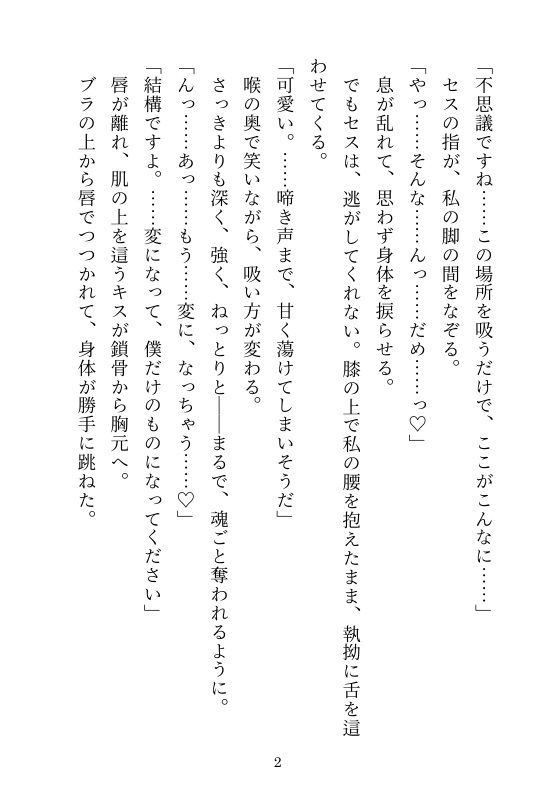 「不思議ですね……この場所を吸うだけで、ここがこんなに……」
セスの指が、私の脚の間をなぞる。
「やっ……そんな……んっ……だめ……っ♡」
息が乱れて、思わず身体を捩らせる。
でもセスは、逃がしてくれない。膝の上で私の腰を抱えたまま、執拗に舌を這
わせてくる。
「可愛い。……啼き声まで、甘く蕩けてしまいそうだ」
喉の奥で笑いながら、吸い方が変わる。
さっきよりも深く、強く、ねっとりと――まるで、魂ごと奪われるように。
「んっ……あっ……もう……変に、なっちゃう……♡」
「結構ですよ。……変になって、僕だけのものになってください」
唇が離れ、肌の上を這うキスが鎖骨から胸元へ。
ブラの上から唇でつつかれて、身体が勝手に跳ねた。
2